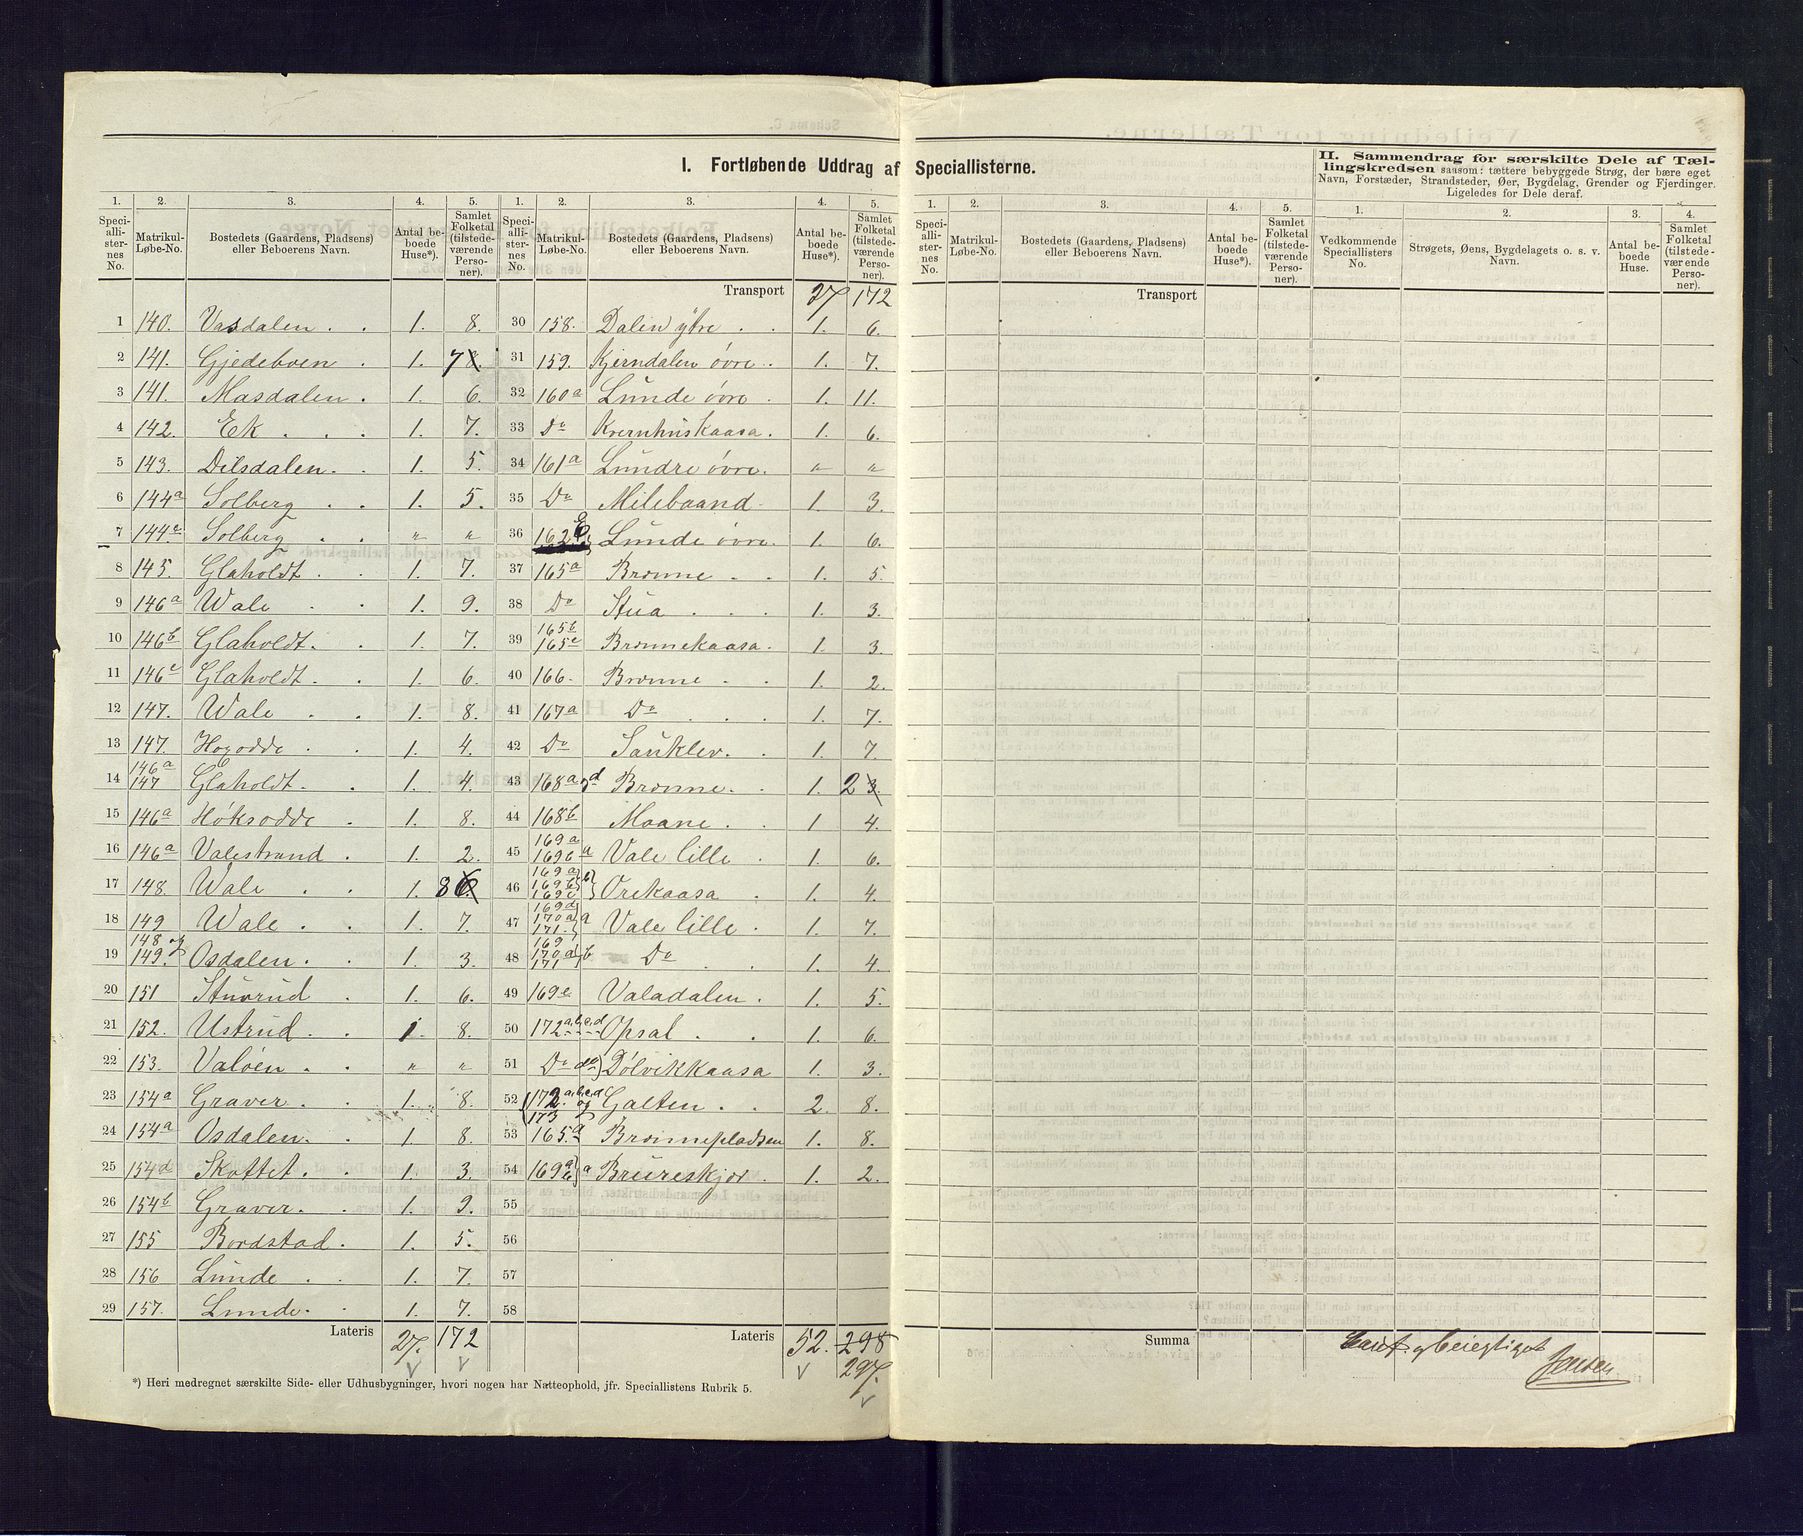 I. Fortløbende Uddrag af Speciallisterne.
II. Sammendrag for særskilte Dele af Tæl-
lingskredsen saasom: tættere bebyggede Strøg, der bære eget
Navn, Forstæder, Strandsteder, Øer, Bygdelag, Grender og Fjerdinger.
Ligeledes for Dele deraf.
1. 2. 3. 4. 5. 1. 2. 3. 4. 5.
Speciallisternes No. Matrikul-Løbe-No. Bostedets (Gaardens, Pladsens) eller Beboerens Navn. Antal beboede Huse*). Samlet Folketal (tilstedeværende Personer).
Speciallisternes No. Matrikul-Løbe-No. Bostedets (Gaardens, Pladsens) eller Beboerens Navn. Antal beboede Huse*). Samlet Folketal (tilstedeværende Personer).
1 140. Vasdalen . . 1. 8.
2 141. Gjedeboen . 1. 7 8.
3 141. Masdalen . 1. 6.
4 142. Ek . . . 1. 7.
5 143. Dilsdalen . . 1. 5.
6 144a Solberg . . 1. 5.
7 144c Solberg . . " "
8 145. Glaholdt . . 1. 7.
9 146a Wale . . 1. 9.
10 146b Glaholdt . . 1. 7.
11 146c Glaholdt . . 1. 6.
12 147. Wale . . 1. 8.
13 147. Hogodde . . 1. 4.
14 146a 147 Glaholdt . . 1. 4.
15 146a Høksodde . 1. 8.
16 146a Valestrand . 1. 2.
17 148. Wale . . 1. 8 6.
18 149 Wale . . 1. 7.
19 148 og 149. Osdalen . . 1. 3.
20 151 Stuvrud . 1. 6.
21 152. Ustrud . . 1. 8.
22 153. Valøen . . " "
23 154a Graver . . 1. 8.
24 154a Osdalen . . 1. 8.
25 154d Skottet . . 1. 3.
26 154b Graver . . 1. 9.
27 155 Bordstad . 1. 5.
28 156 Lunde . . 1. 7.
29 157. Lunde . . 1. 7.
Lateris 27. 172
Transport 27 172
30 158. Dalen ytre . . 1. 6.
31 159. Kjerndalen øvre . 1. 7.
32 160a Lunde øvre . 1. 11.
33 Do Kvernhuskaasa . 1. 6.
34 161a Lundre øvre . " "
35 Do Milebaand 1. 3.
36 162 Lunde øvre . 1. 6.
37 165a Brønne . . 1. 5.
38 Do Stua . . . 1. 3.
39 165b 165c Brønnekaasa . 1. 3.
40 166. Brønne . . 1. 2.
41 167a Do . . . 1. 7.
42 Do Sauklev . . 1. 7.
43 168a og d Brønne . . 1. 2 3.
44 168b Moane . . 1 4.
45 169a 169b a Vale lille . 1. 6.
46 169a 169b 169c b Orekaasa . 1. 4.
47 169d 170a 171. a Vale lille . 1. 7.
48 169 170a 171 b Do . . 1. 4.
49 169e Valadalen . 1. 5.
50 172a,b,c,d Opsal . . 1. 6.
51 Do do Dølvikkaasa 1. 3.
52 172.a,b,c,d og 173 Galten . . 2. 8.
53 165.a Brønnepladsen 1. 8.
54 169a b a Brureskjør . 1. 2.
55
56
57
58
Lateris 52. 298
297.
*) Heri medregnet særskilte Side- eller Udhusbygninger, hvori nogen har Natteophold, jfr. Speciallistens Rubrik 5.
1. 2. 3. 4. 5. 1. 2. 3. 4.
Speciallisternes No. Matrikul-Løbe-No. Bostedets (Gaardens, Pladsens) eller Beboerens Navn. Antal beboede Huse*). Samlet Folketal (tilstedeværende Personer).
Vedkommende Speciallisters No. Strøgets, Øens, Bygdelagets o. s. v. Navn. Antal beboede Huse. Samlet Folketal (tilstedeværende Personer).
Transport
Summa
Jensen